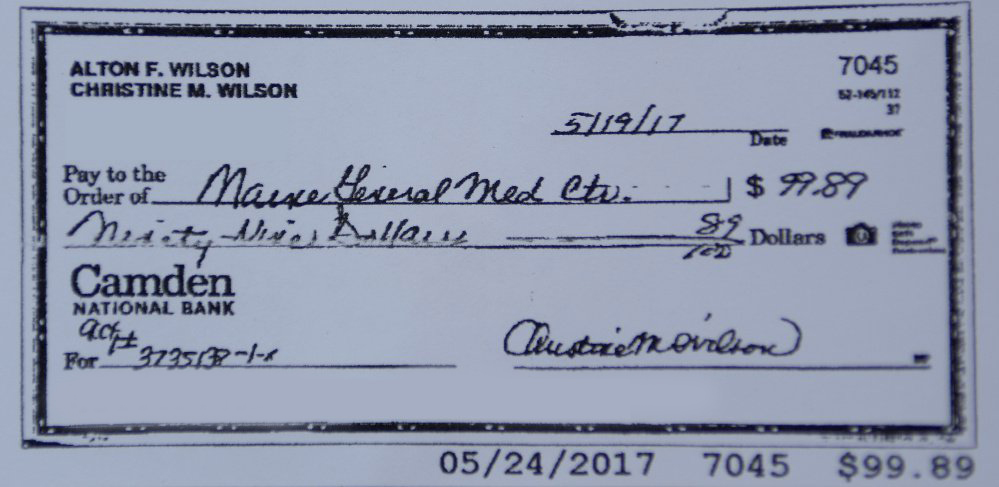 ALTON F. WILSON
CHRISTINE M. WILSON
7045
52-145/112
37
5/19/17
Date
Pay to the
Order of Maine General Med Ctr. $ 99.89
Ninety Nine Dollars 89/100 Dollars
Camden
NATIONAL BANK
act#
For 3735137-1-x
Christine M Wilson
MP
05/24/2017 7045 $99.89